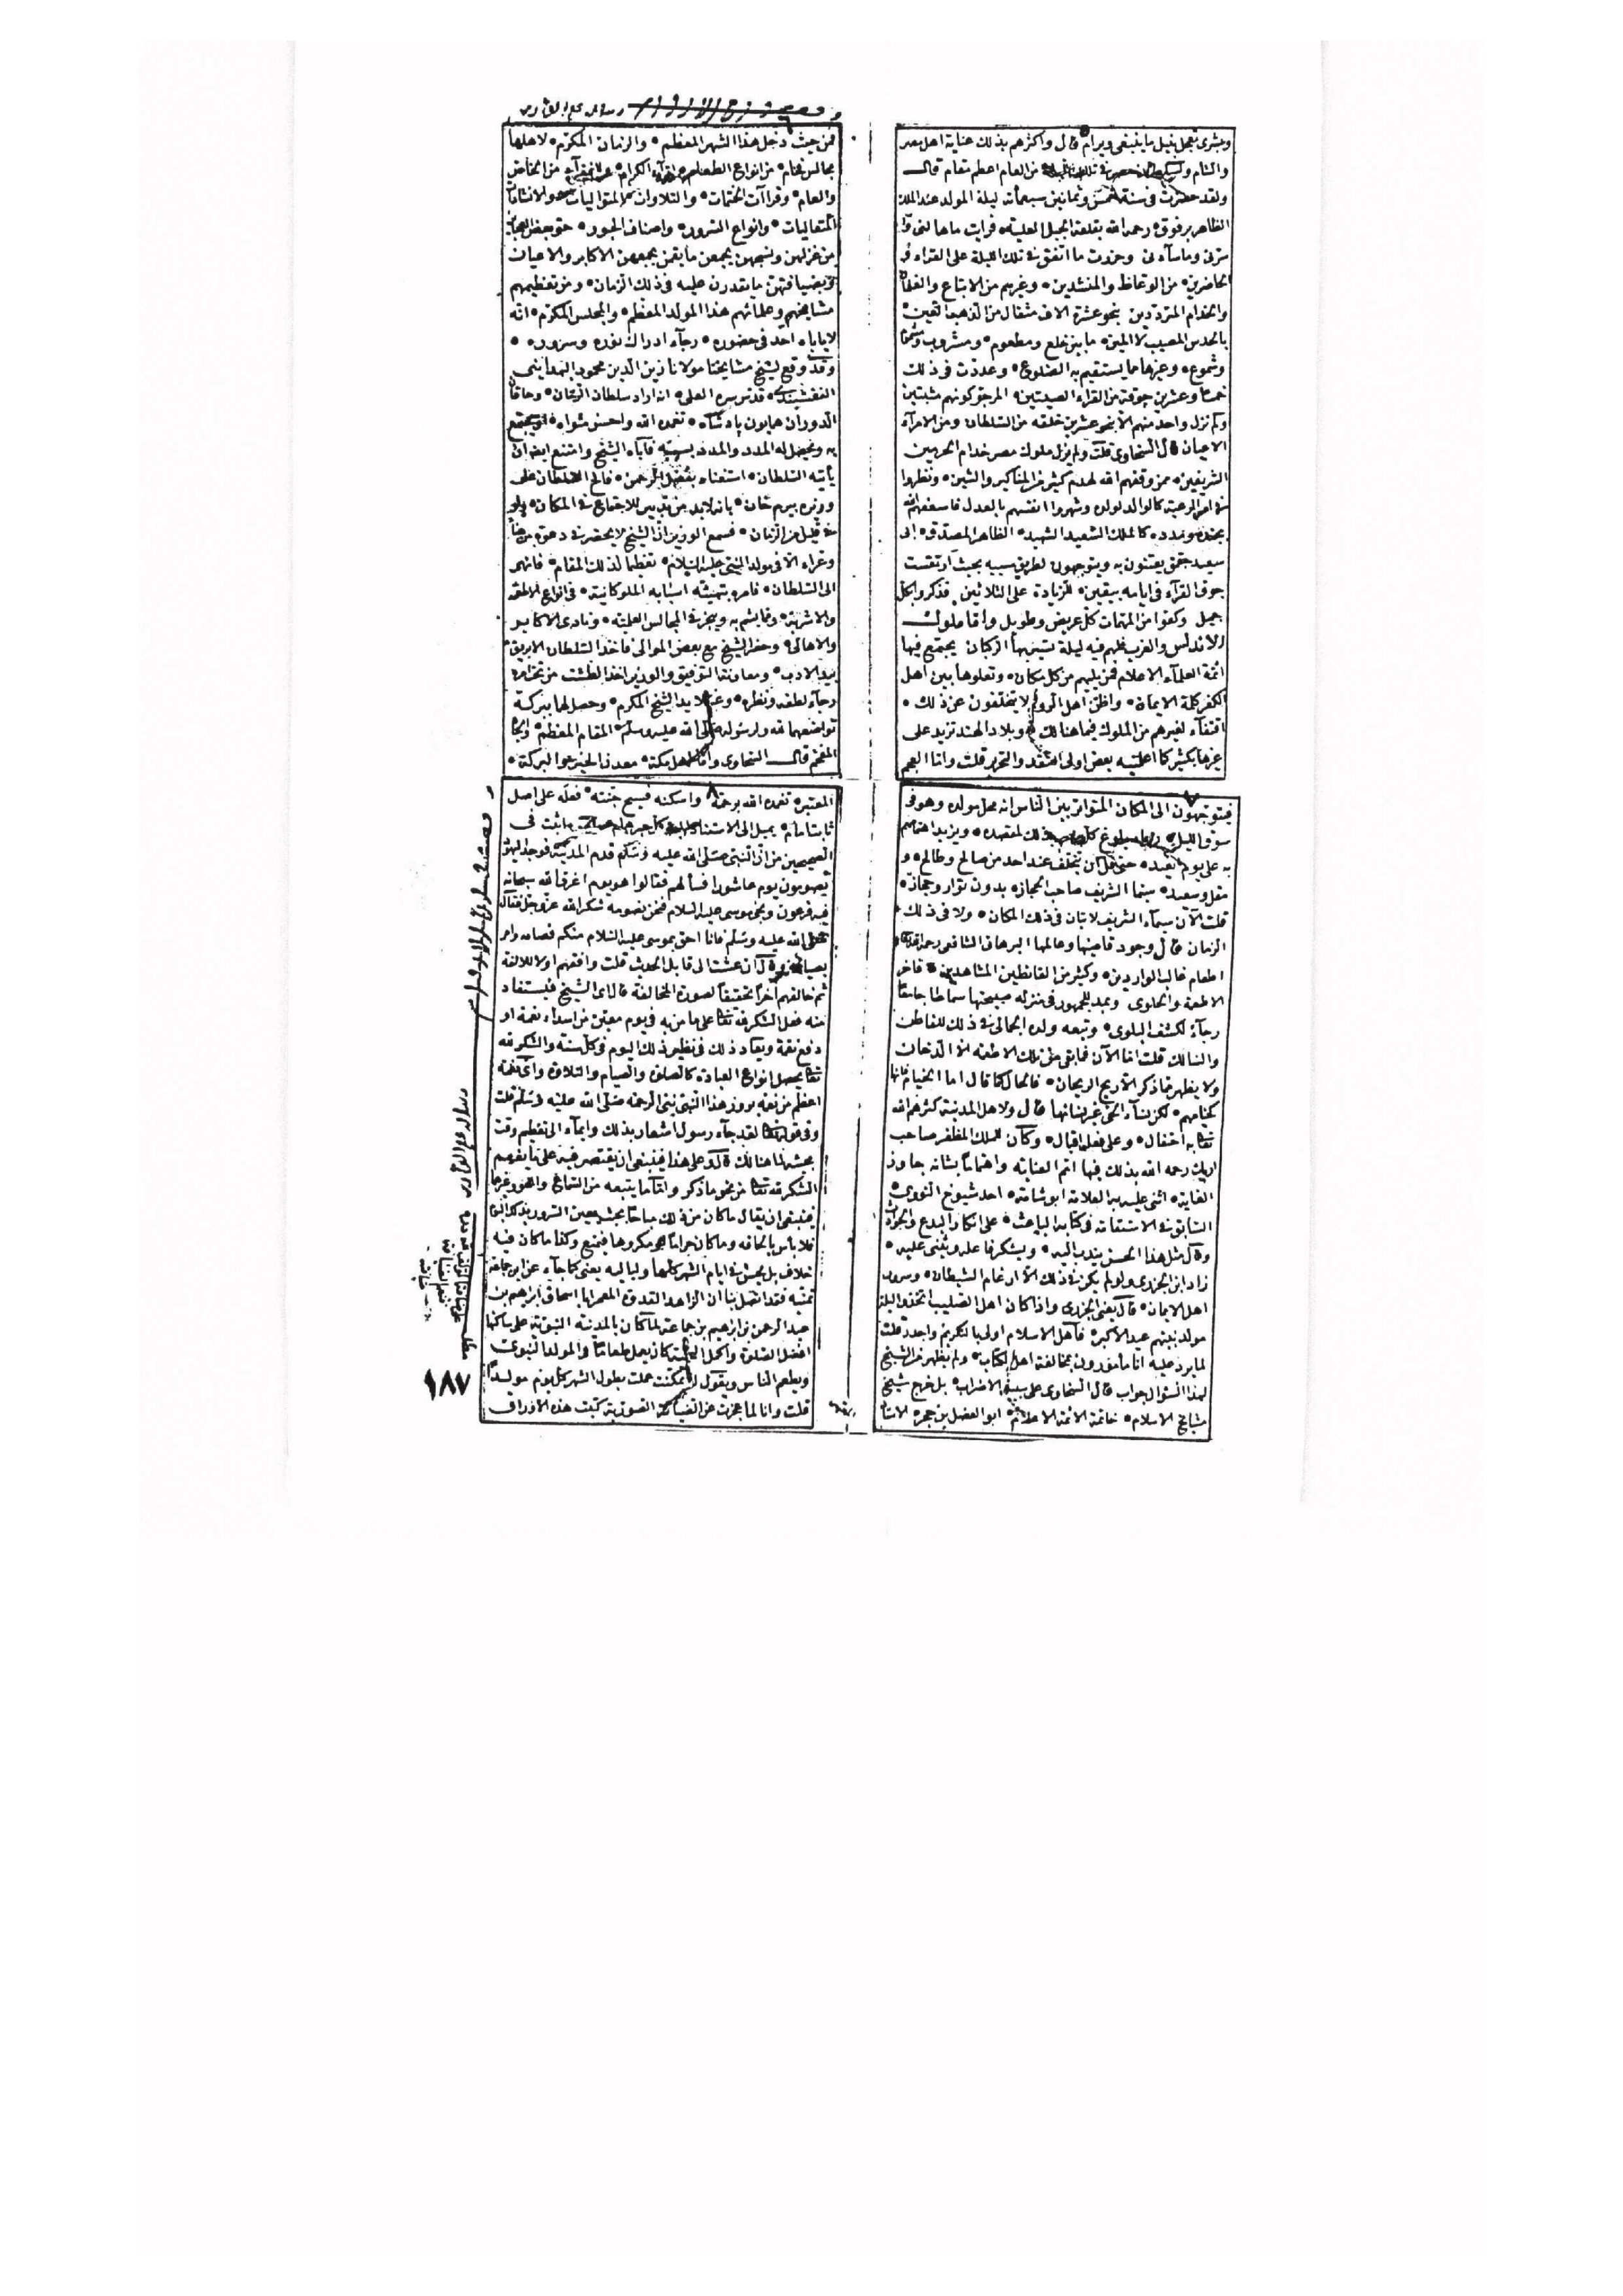 وبشرى تعجل بنيل ما ينبغي ويرام قال واكثرهم بذلك عناية اهل مصر
والشام ولسلطان مصر في تلك الليلة من العام اعظم مقام قال
ولقد حضرت في سنة خمس وثمانين سبعمائة ليلة المولد عند الملك
الظاهر برقوق رحمه الله بقلعة الجبل العلية فرايت ما هالني و
سرني وما ساءني وحررت ما انفق في تلك الليلة على القراء و
الحاضرين من الوعاظ والمنشدين وغيرهم من الاتباع والغلمان
والخدام المترددين بنحو عشرة الاف مثقال من الذهب
ما بين خلع ومطعوم ومشروب و
وشموع وغيرها مما يستقيم به الضلوع وعددت في ذلك
خمسا وعشرين جوقة من القراء الصيتين المرجو كونهم مثبتين
ولم نزل واحد منهم الا بنحو عشرين خلعة من السلطان ومن الامراء
الاعيان قال السخاوي قلت ولم يزل ملوك مصر خدام الحرمين
الشريفين ممن وفقهم الله لهدم كثير من المناكير والشين ونظروا
في امر الرعية كالوالد لولده وشهروا انفسهم بالعدل فاسعفهم الله
بجنده ومدده كالملك السعيد الشهيد الظاهر المصدق ابي
سعيد جقمق يعتنون به ويتوجهون لطريق سببه بحيث ارتقت
جوق القراء في ايامه بيقين للزيادة على الثلاثين فذكروا بكل
جميل وكفوا من المهمات كل عريض وطويل واما ملوك
الاندلس والغرب فلهم فيه ليلة تسير بها الركبان يجتمع فيها
ائمة العلماء الاعلام فمن يليهم من كل مكان وتعلوها بين اهل
الكفر كلمة الايمان واظن اهل الروم لا يتخلفون عن ذلك
اقتفاء لغيرهم من الملوك فيما هنالك وبلاد الهند تزيد على
غيرها بكثير كما اعلمنيه بعض اولى النقد والتحرير قلت واما العجم
فمن حيث دخل هذا الشهر المعظم والزمان المكرم لاهلها
مجالس فخام من انواع الطعام للقراء الكرام وللفقراء من الخاص
والعام وقراآت الختمات والتلاوات المتواليات والانشادات
المتعاليات وانواع السرور واصناف الحبور حتى بعض العجائز
من غزلهن ونسجهن يجمعن ما يقمن بجمعهن الاكابر والاعيان
وبضيافتهن ما يقدرن عليه في ذلك الزمان ومن تعظيمهم
مشايخهم وعلمائهم هذا المولد المعظم والمجلس المكرم انه
لا ياباه احد في حضوره رجاء ادراك نوره وسروره
وقد وقع لشيخ مشايخنا مولانا زين الدين محمود البهدايني
النقشبندي قدس سره العلي انه اراد سلطان الزمان وخاقان
الدوران همايون بادشاه تغمده الله واحسن مثواه ان يجتمع
به ويحصل له المدد والمدد بسببه فاباه الشيخ وامتنع ايضا ان
ياتيه السلطان استغناء بفضل الرحمن فالح السلطان على
وزيره بيرم خان بانه لا بد من تدبير للاجتماع في المكان ولو
في قليل من الزمان فسمع الوزير ان الشيخ لا يحضر في دعوة من هناء
وعزاء الا في مولد النبي عليه السلام تعظيما لذلك المقام فانهى
الى السلطان فامره بتهيئة اسبابه الملوكانية في انواع الاطعمة
والاشربة ومما يشم به ويبخر في المجالس العلية ونادى الاكابر
والاهالي وحضر الشيخ مع بعض الموالي فاخذ السلطان الابريق
بيد الادب ومعاونة التوفيق والوزير اخذ الطشت من تحت امره
رجاء لطفه ونظره وغسلا يد الشيخ المكرم وحصل لهما ببركة
تواضعهما لله ولرسوله صلى الله عليه وسلم المقام المعظم والجاه
المفخم قال السخاوي واما اهل مكة معدن الخير والبركة
٧
فيتوجهون الى المكان المتواتر بين الناس انه محل مولده وهو في
سوق الليل رجاء بلوغ كل منهم بذلك لمقصده ويزيد اهتمامهم
به على يوم العيد حتى قل ان يتخلف عنه احد من صالح وطالح و
مقل وسعيد سيما الشريف صاحب الحجاز بدون توار وحجاز
قلت الآن سيماء الشريف لاتيان في ذلك المكان ولا في ذلك
الزمان قال وجود قاضيها وعالمها البرهان الشافعي رحمه الله
اطعام غالب الواردين وكثير من القاطنين المشاهدين فاخر
الاطعمة والحلوى ويمد للجمهور في منزله صبيحتها سماطا جامعا
رجاء لكشف البلوى وتبعه ولده الجمالي في ذلك للقاطن
والسالك قلت اما الآن فما بقى من تلك الاطعمة الا الدخان
ولا يظهر مما ذكر الا ريح الريحان فالحال كما قال اما الخيام فانها
كخيامهم لكن نساء الحي غير نسائها قال ولاهل المدينة كثرهم الله
به احتفال وعلى فعله اقبال وكان للملك المظفر صاحب
اربل رحمه الله بذلك فيها اتم العناية واهتماما بشانه جاوز
الغاية اثنى عليه به العلامة ابو شامة احد شيوخ النووي
السابق في الاستقامة في كتابه الباعث على انكار البدع والحوادث
وقال مثل هذا الحسن يندب اليه ويشكر فاعله ويثنى عليه
زاد ابن الجزري ولو لم يكن في ذلك الا ارغام الشيطان وسرور
اهل الايمان قال يعني الجزري واذا كان اهل الصليب اتخذوا ليلة
مولد نبيهم عيدا اكبر فاهل الاسلام اولى بالتكريم واجدر قلت
لما يرد عليه انا مامورون بمخالفة اهل الكتاب ولم يظهر من الشيخ
لهذا السؤال جواب قال السخاوي على سبيل الاضراب بل خرج شيخ
مشايخ الاسلام خاتمة الائمة الاعلام ابو الفضل بن حجر الاستاذ
٨
المعتبر تغمده الله برحمته واسكنه فسيح جنته فعله على اصل
ثابت
الصحيحين من ان النبي صلى الله عليه وسلم قدم المدينة فوجد اليهود
يصومون يوم عاشورا فسألهم فقالوا هو يوم اغرق الله سبحانه
فيه فرعون ونجى موسى عليه السلام فنحن نصومه شكرا لله عز وجل فقال
صلى الله عليه وسلم فانا احق بموسى عليه السلام منكم فصامه وامر
بصيامه وقال ان عشت الى قابل الحديث قلت وافقهم اولا للالفة
ثم خالفهم آخرا تحقيقا لصورة المخالفة قال اى الشيخ فيستفاد
منه فعل الشكر لله تعالى على ما من به في يوم معين من اسداء نعمة او
دفع نقمة ويعاد ذلك في نظير ذلك اليوم في كل سنة والشكر لله
تعالى يحصل بانواع العبادة كالصلوة والصيام والتلاوة واى نعمة
اعظم من نعمة بروز هذا النبي نبي الرحمة صلى الله عليه وسلم قلت
وفي قوله تعالى لقد جاءكم رسول اشعار بذلك وايماء الى تعظيم وقت
مجيئه هنالك قال وعلى هذا فينبغي ان يقتصر فيه على ما يفهم
الشكر لله تعالى من نحو ما ذكر واما ما يتبعه من السماع واللهو وغيرها
فينبغي ان يقال ما كان من ذلك مباحا بحيث يعين السرور بذلك اليوم
فلا بأس بالحاقه وما كان حراما او مكروها فيمنع وكذا ما كان فيه
خلاف بل يحسن في ايام الشهر كلها ولياليه يعني كما جاء عن ابن جماعة
تمنيه فقد اتصل بنا ان الزاهد القدوة المعمر ابا اسحاق ابراهيم بن
عبد الرحمن بن ابراهيم بن جماعة لما كان بالمدينة النبوية على ساكنها
افضل الصلوة واكمل التحية كان يعمل طعاما في المولد النبوي
ويطعم الناس ويقول لو تمكنت عملت بطول الشهر كل يوم مولدا
قلت وانا لما عجزت عن الضيافة الصورية كتبت هذه الاوراق
١٨٧